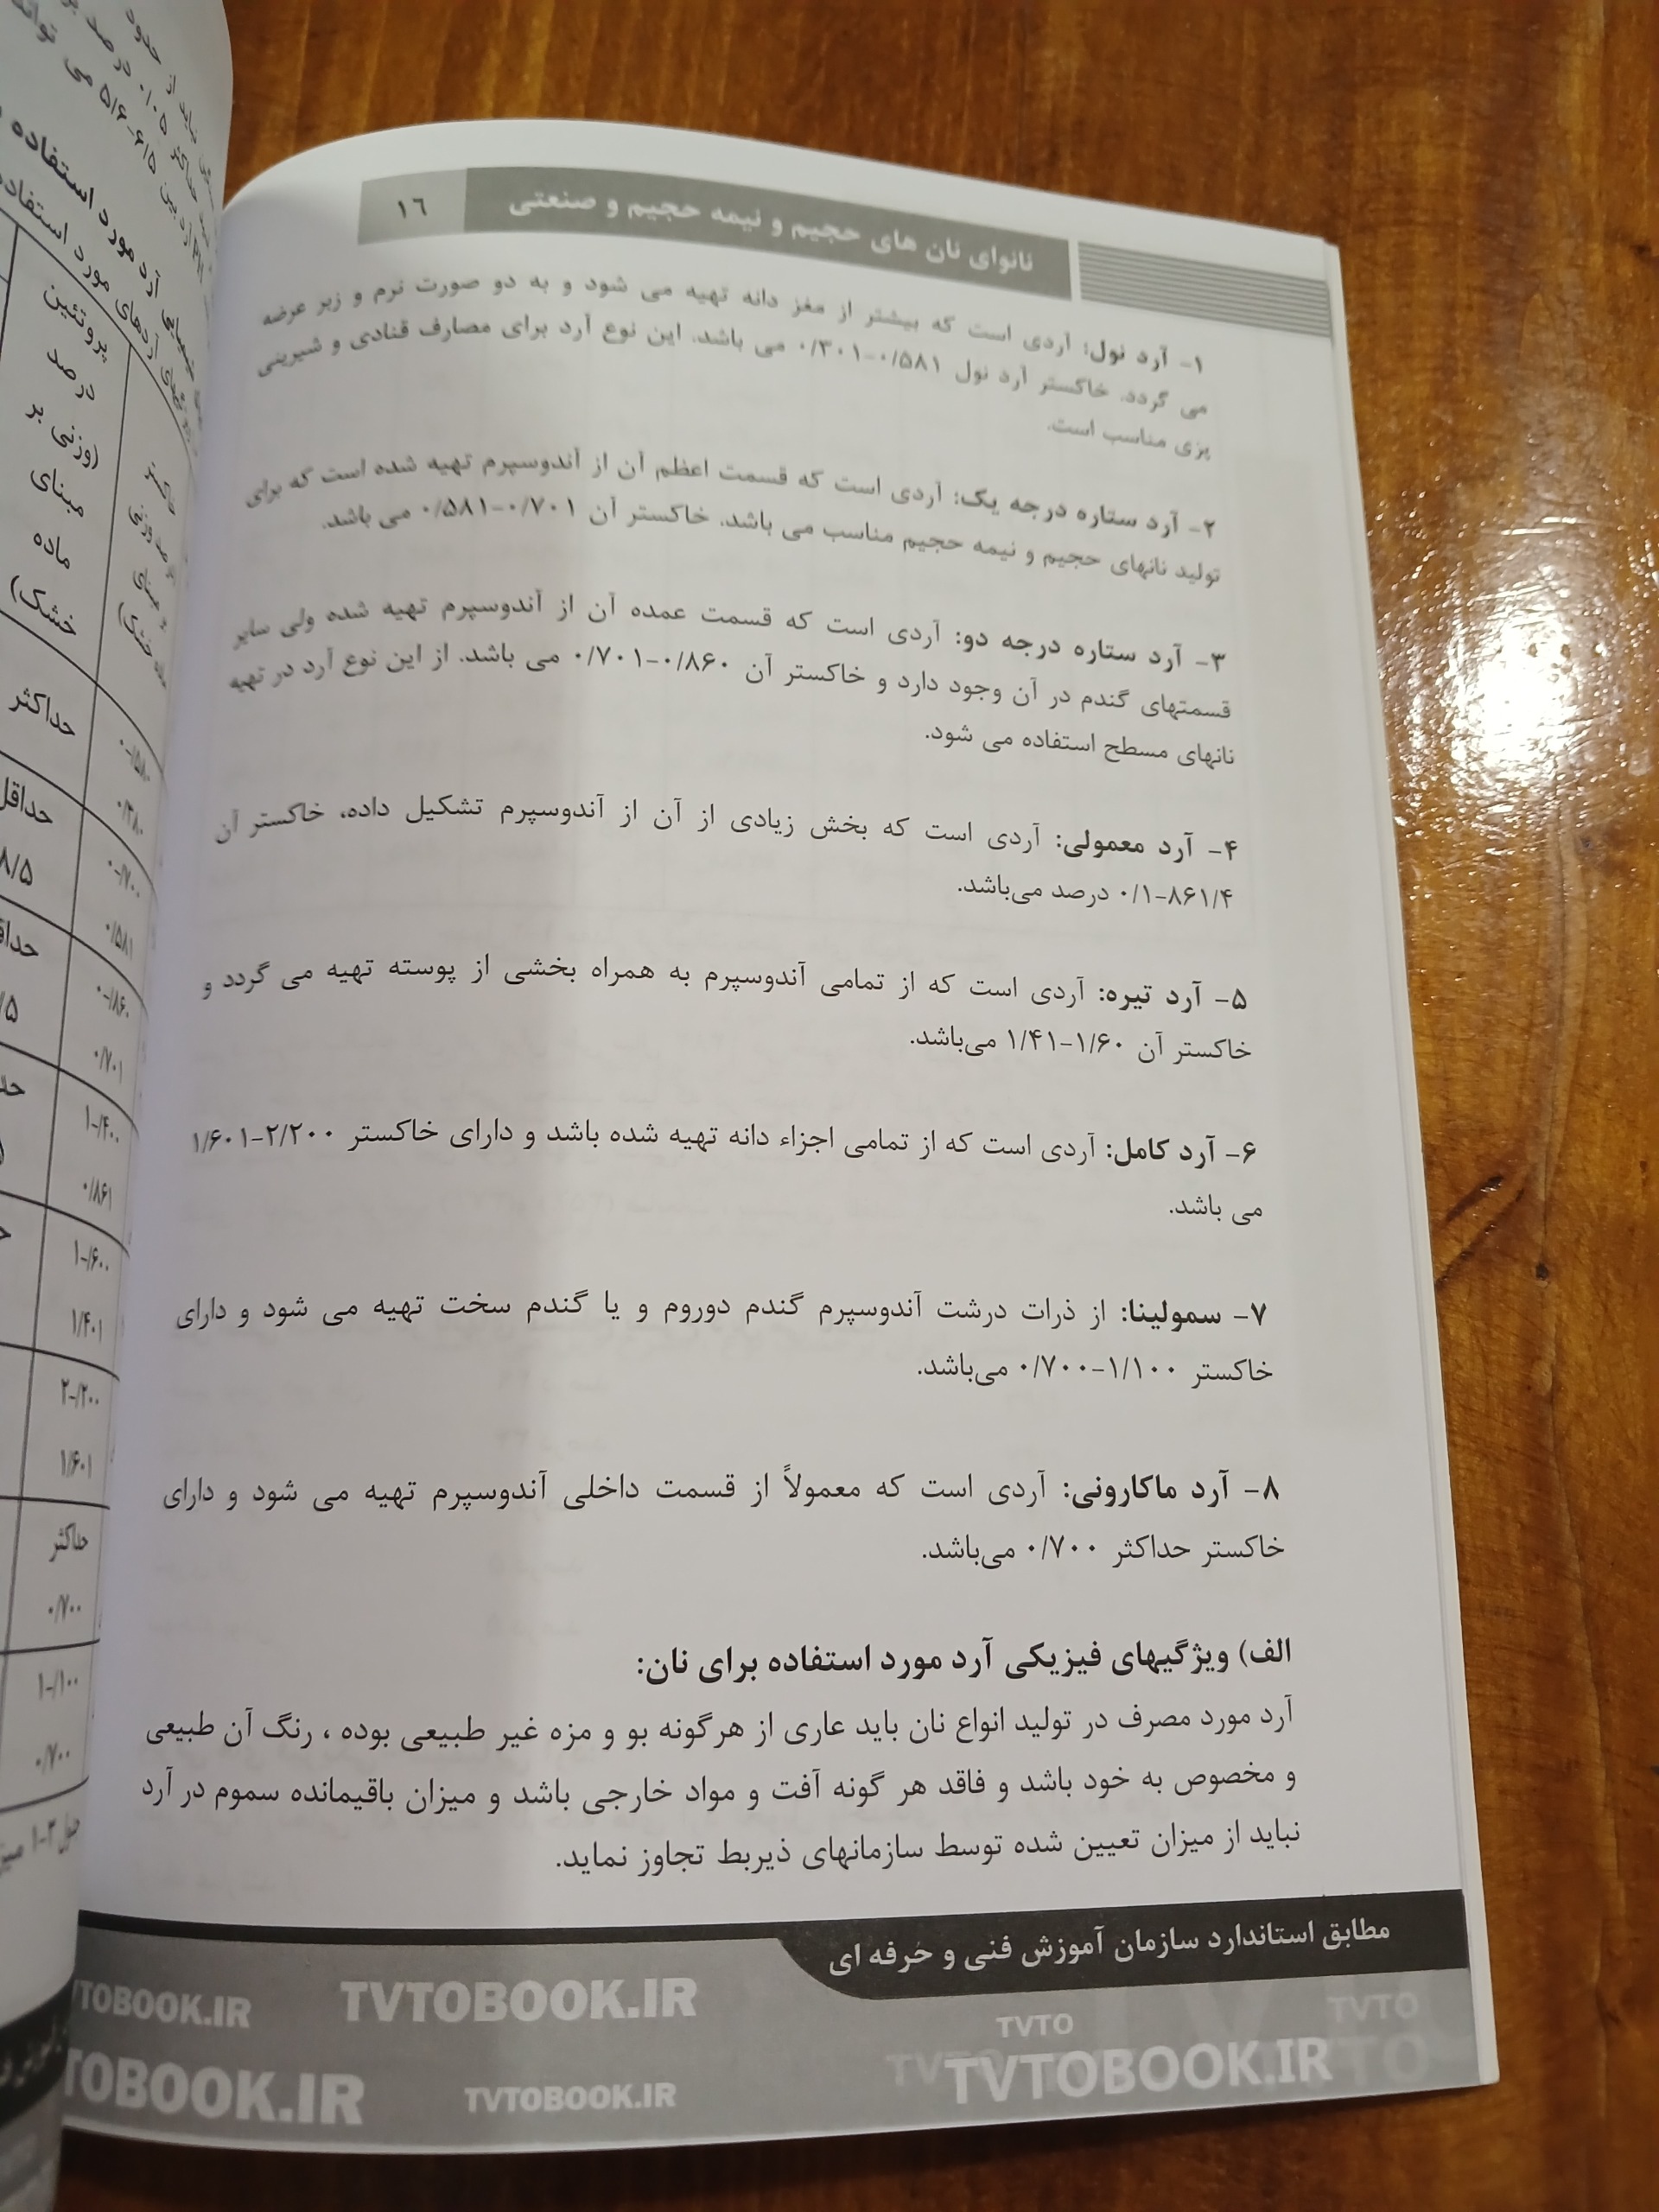 نانوای نان های حجیم و نیمه حجیم و صنعتی ۱۶
۱- آرد نول: آردی است که بیشتر از مغز دانه تهیه می شود و به دو صورت نرم و زبر عرضه
می گردد. خاکستر آرد نول ۰/۵۸۱-۰/۳۰۱ می باشد. این نوع آرد برای مصارف قنادی و شیرینی
پزی مناسب است.
۲- آرد ستاره درجه یک: آردی است که قسمت اعظم آن از آندوسپرم تهیه شده است که برای
تولید نانهای حجیم و نیمه حجیم مناسب می باشد. خاکستر آن ۰/۷۰۱-۰/۵۸۱ می باشد.
۳- آرد ستاره درجه دو: آردی است که قسمت عمده آن از آندوسپرم تهیه شده ولی سایر
قسمتهای گندم در آن وجود دارد و خاکستر آن ۰/۸۶۰-۰/۷۰۱ می باشد. از این نوع آرد در تهیه
نانهای مسطح استفاده می شود.
۴- آرد معمولی: آردی است که بخش زیادی از آن از آندوسپرم تشکیل داده، خاکستر آن
۰/۱-۸۶۱/۴ درصد می‌باشد.
۵- آرد تیره: آردی است که از تمامی آندوسپرم به همراه بخشی از پوسته تهیه می گردد و
خاکستر آن ۱/۶۰-۱/۴۱ می‌باشد.
۶- آرد کامل: آردی است که از تمامی اجزاء دانه تهیه شده باشد و دارای خاکستر ۲/۲۰۰-۱/۶۰۱
می باشد.
۷- سمولینا: از ذرات درشت آندوسپرم گندم دوروم و یا گندم سخت تهیه می شود و دارای
خاکستر ۱/۱۰۰-۰/۷۰۰ می‌باشد.
۸- آرد ماکارونی: آردی است که معمولاً از قسمت داخلی آندوسپرم تهیه می شود و دارای
خاکستر حداکثر ۰/۷۰۰ می‌باشد.
الف) ویژگیهای فیزیکی آرد مورد استفاده برای نان:
آرد مورد مصرف در تولید انواع نان باید عاری از هرگونه بو و مزه غیر طبیعی بوده ، رنگ آن طبیعی
و مخصوص به خود باشد و فاقد هر گونه آفت و مواد خارجی باشد و میزان باقیمانده سموم در آرد
نباید از میزان تعیین شده توسط سازمانهای ذیربط تجاوز نماید.
مطابق استاندارد سازمان آموزش فنی و حرفه ای
TVTOBOOK.IR
TVTOBOOK.IR
TVTO
TVTO
TVTOBOOK.IR
TVTOBOOK.IR
TVTOBOOK.IR
پروتئین
درصد
(وزنی بر
مبنای
ماده
خشک)
حداکثر
حداقل
۸/۵
۰/۷۰۱
۰/۸۶۱
۱/۴۰۱
۱/۶۰۱
حداکثر
۰/۷۰۰
۰/۷۰۰